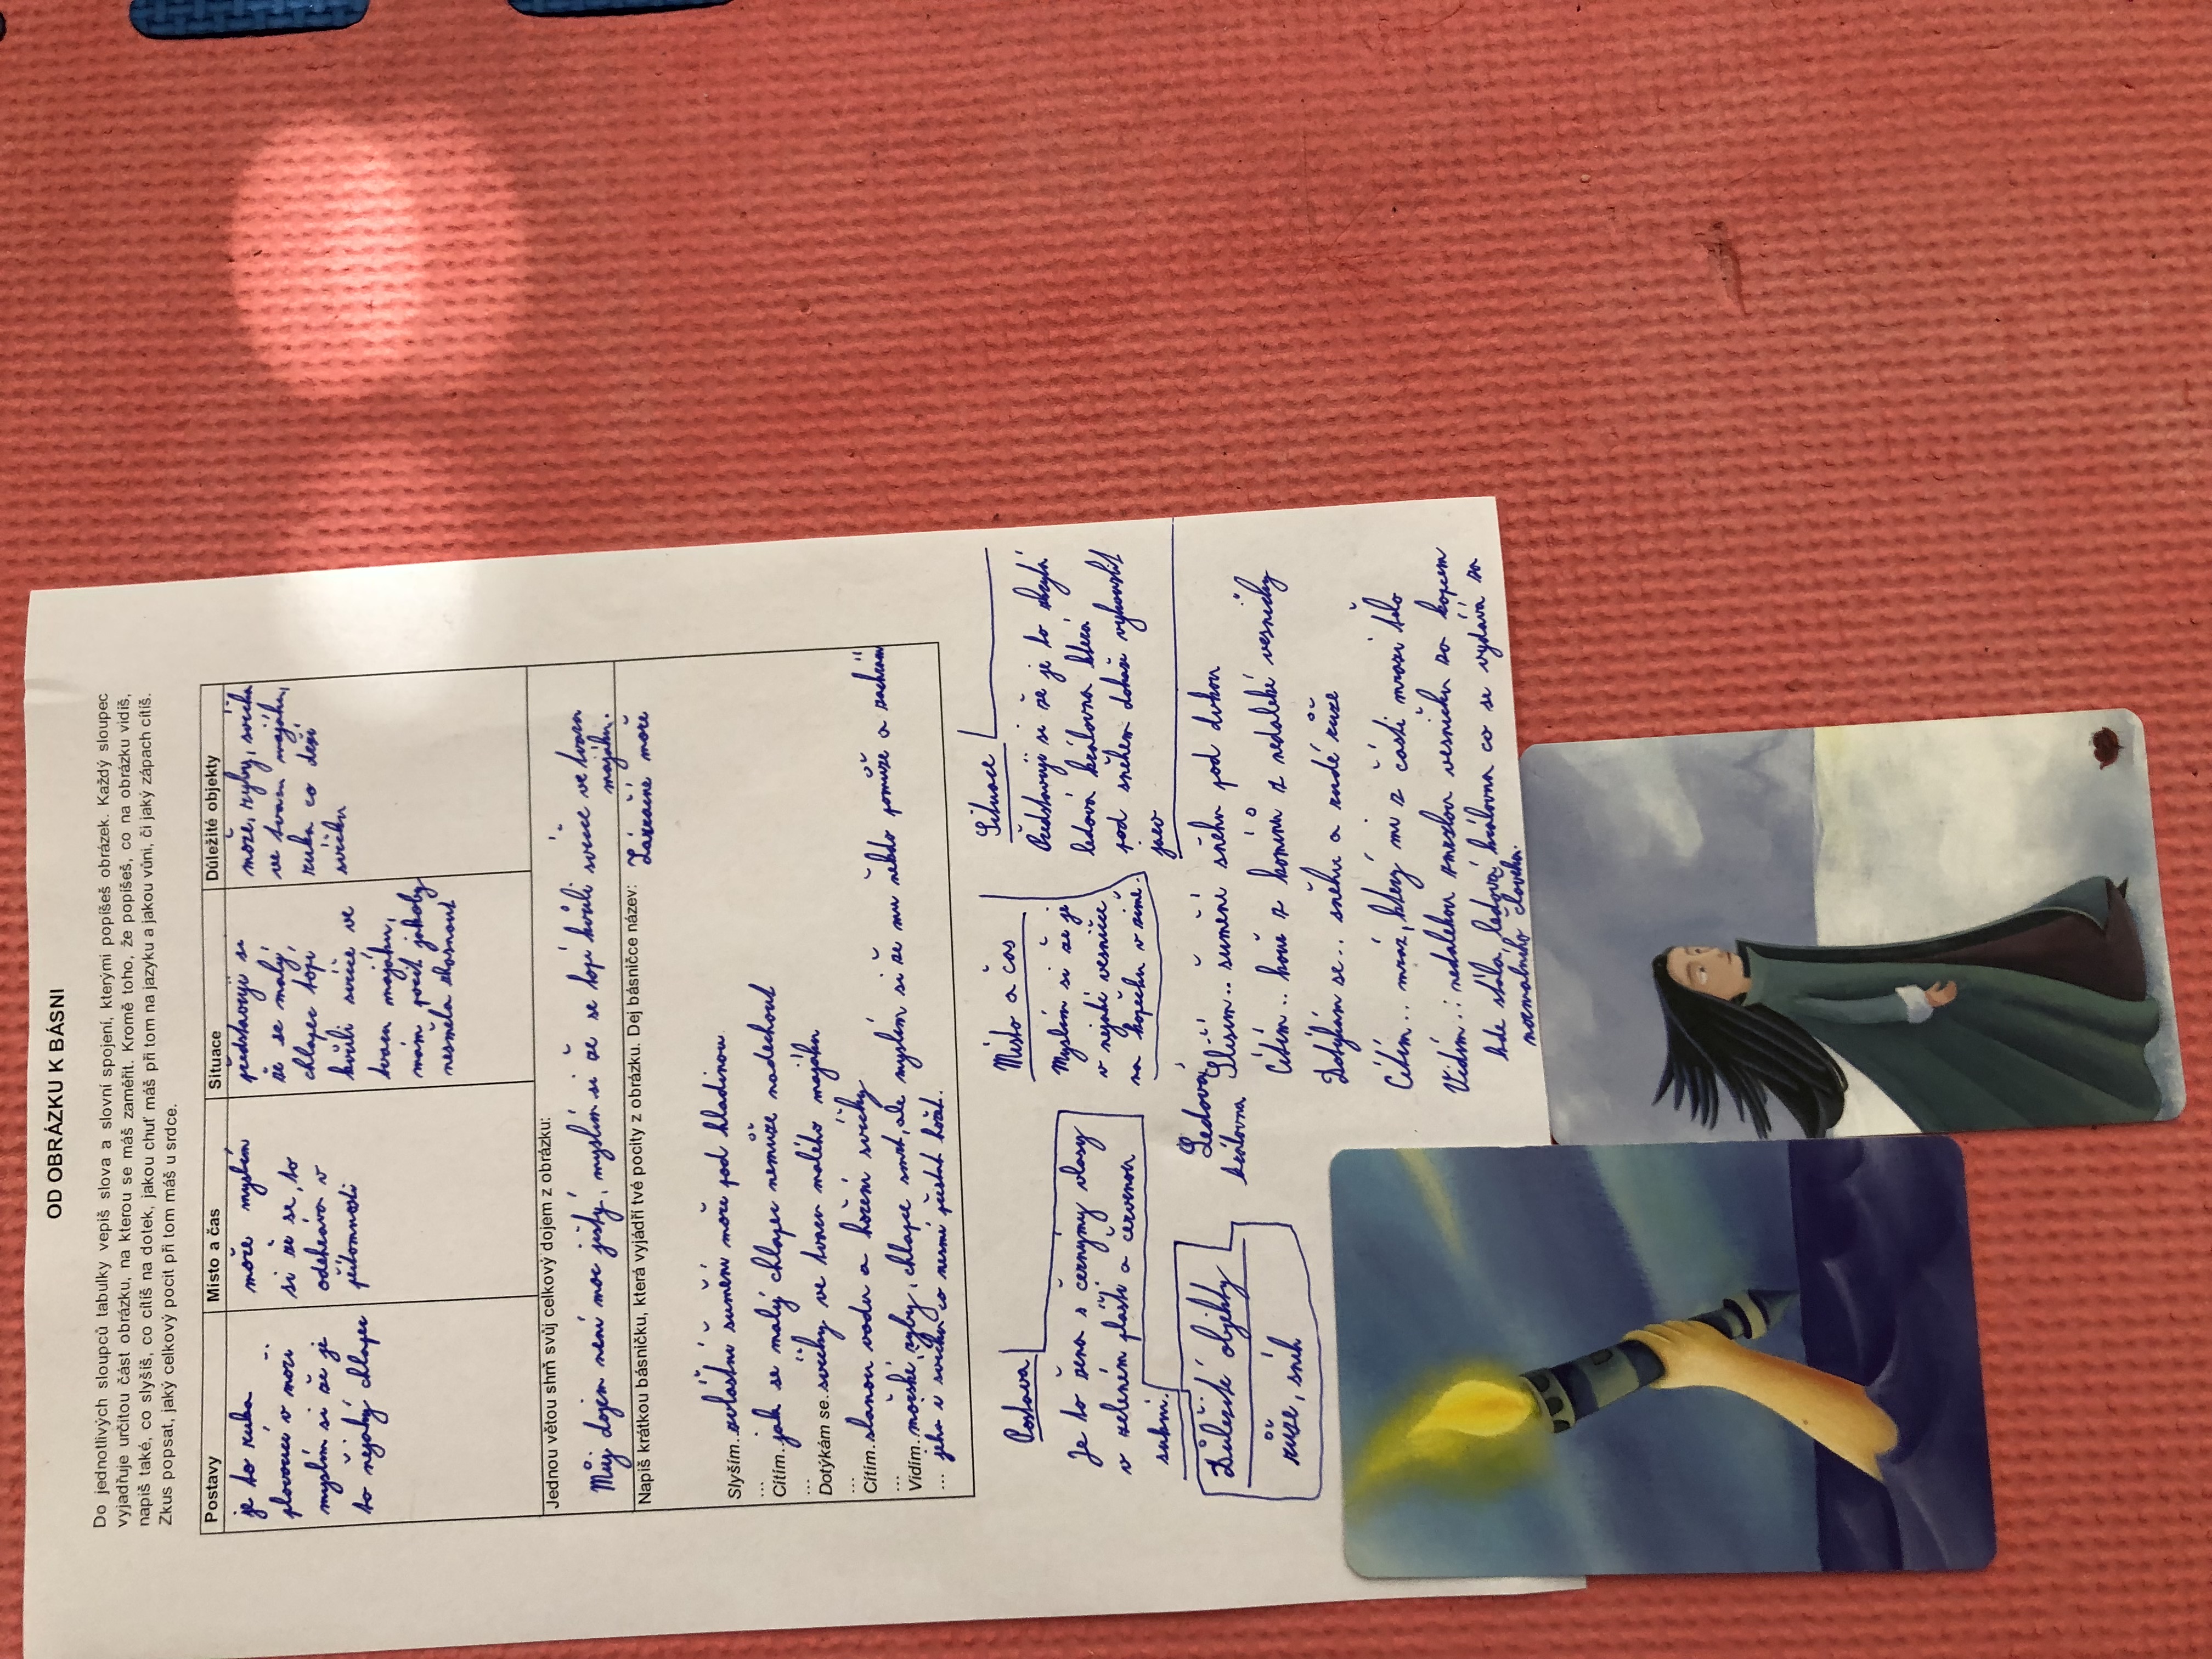 OD OBRÁZKU K BÁSNI
Do jednotlivých sloupců tabulky vepiš slova a slovní spojení, kterými popíšeš obrázek. Každý sloupec
vyjadřuje určitou část obrázku, na kterou se máš zaměřit. Kromě toho, že popíšeš, co na obrázku vidíš,
napiš také, co slyšíš, co cítíš na dotek, jakou chuť máš při tom na jazyku a jakou vůni, či jaký zápach cítíš.
Zkus popsat, jaký celkový pocit při tom máš u srdce.
Postavy
je to ruka
plovoucí v moři
myslím si že je
to nějaký chlapec
Místo a čas
moře myslím
si že se to
odehrává v
přítomnosti
Situace
představuji si
že se malý
chlapec topí
kvůli svíčce ve
tvaru majáku,
mám pocit jakoby
nesměla zhasnout
Důležité objekty
moře, ryby, svíčka
ve tvaru majáku,
ruka co drží
svíčku
Jednou větou shrň svůj celkový dojem z obrázku:
Můj dojem není moc jistý, myslím si že se topí kvůli svíčce ve tvaru
majáku.
Napiš krátkou básničku, která vyjádří tvé pocity z obrázku. Dej básničce název: moře
Slyším.. zvláštní šumění moře pod hladinou
...
Cítím.. jak se malý chlapec nemůže nadechnout
...
Dotýkám se.. svíčky ve tvaru malého majáku
...
Cítím.. slanou vodu a hoření svíčky
...
Vidím.. mořské ryby, chlapce smrt, ale myslím si že mu někdo pomůže a zachrání
... jeho i svíčku co nesmí přestat hořet.
Postava
Je to žena s černýmy vlasy
v zeleném plášti a červenou
sukní.
Místo a čas
Myslím si že je
v nějaké vesničce
na kopečku v zimě.
Situace
Představuji si že je to zbylá
ledová královna která
pod sněhem dokáže vykouzlit
jaro
Důležité objekty
růže, sníh
Ledová
královna
Slyším.. šumění sněhu pod dvkou
Cítím.. kouř z komínů z nedaleké vesničky
Dotýkám se.. sněhu a rudé růže
Cítím.. mráz, který mi z části mrazí tělo
Vidím.. nedalekou zmrzlou vesničku za kopcem
kde stála ledová královna co se vydává za
normálního člověka.